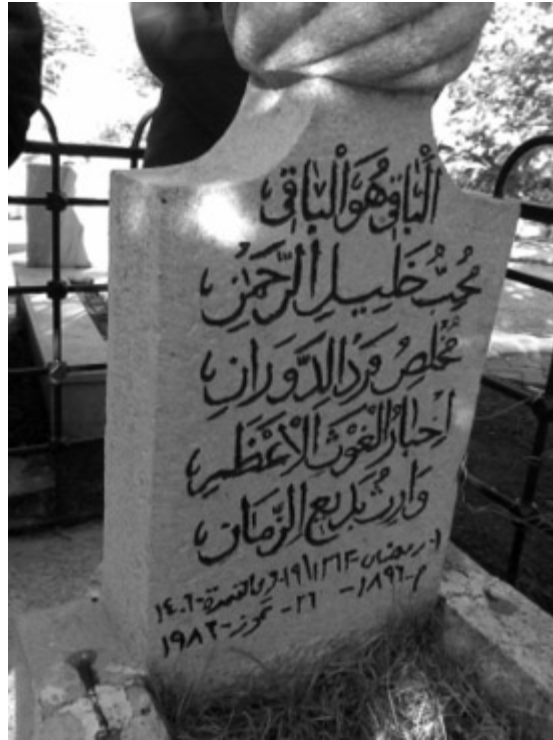 اَلْبَاقِي هُوَ الْبَاقِي
مُحِبُّ خَلِيلِ الرَّحْمٰنِ
مُخْلِصُ فَرْدِ الدَّوَرَانِ
اَحِبَّارُ الْغَوْثِ الْاَعْظَمِ
وَارِثُ بَدِيعِ الزَّمَان
١٠ رمضان-١٣١٣/١٩-ذي القعدة-١٤٠٢
م-١٨٩٦- ٢٦- تموز-١٩٨٢